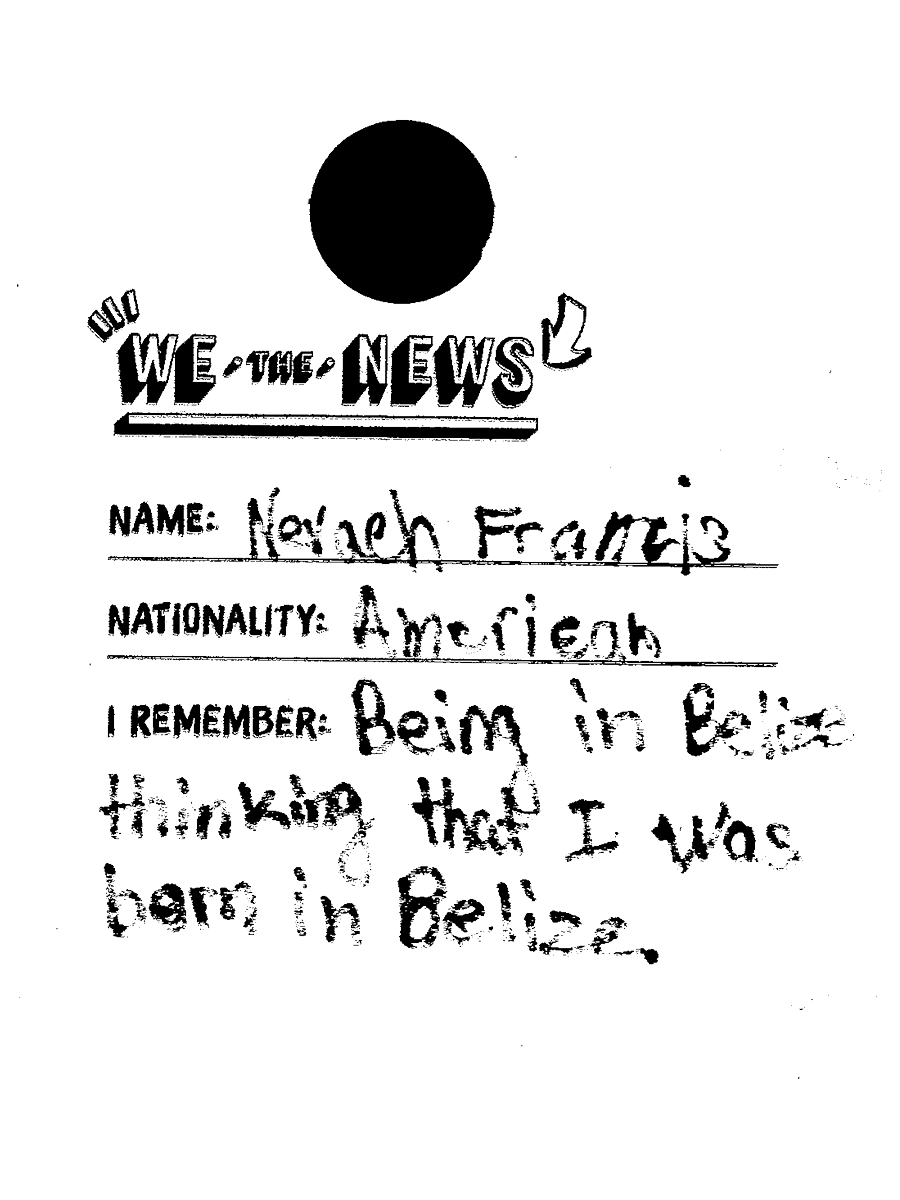 WE THE NEWS
NAME: Nevaeh Francis
NATIONALITY: American
I REMEMBER: Being in Belize
thinking that I was
born in Belize.